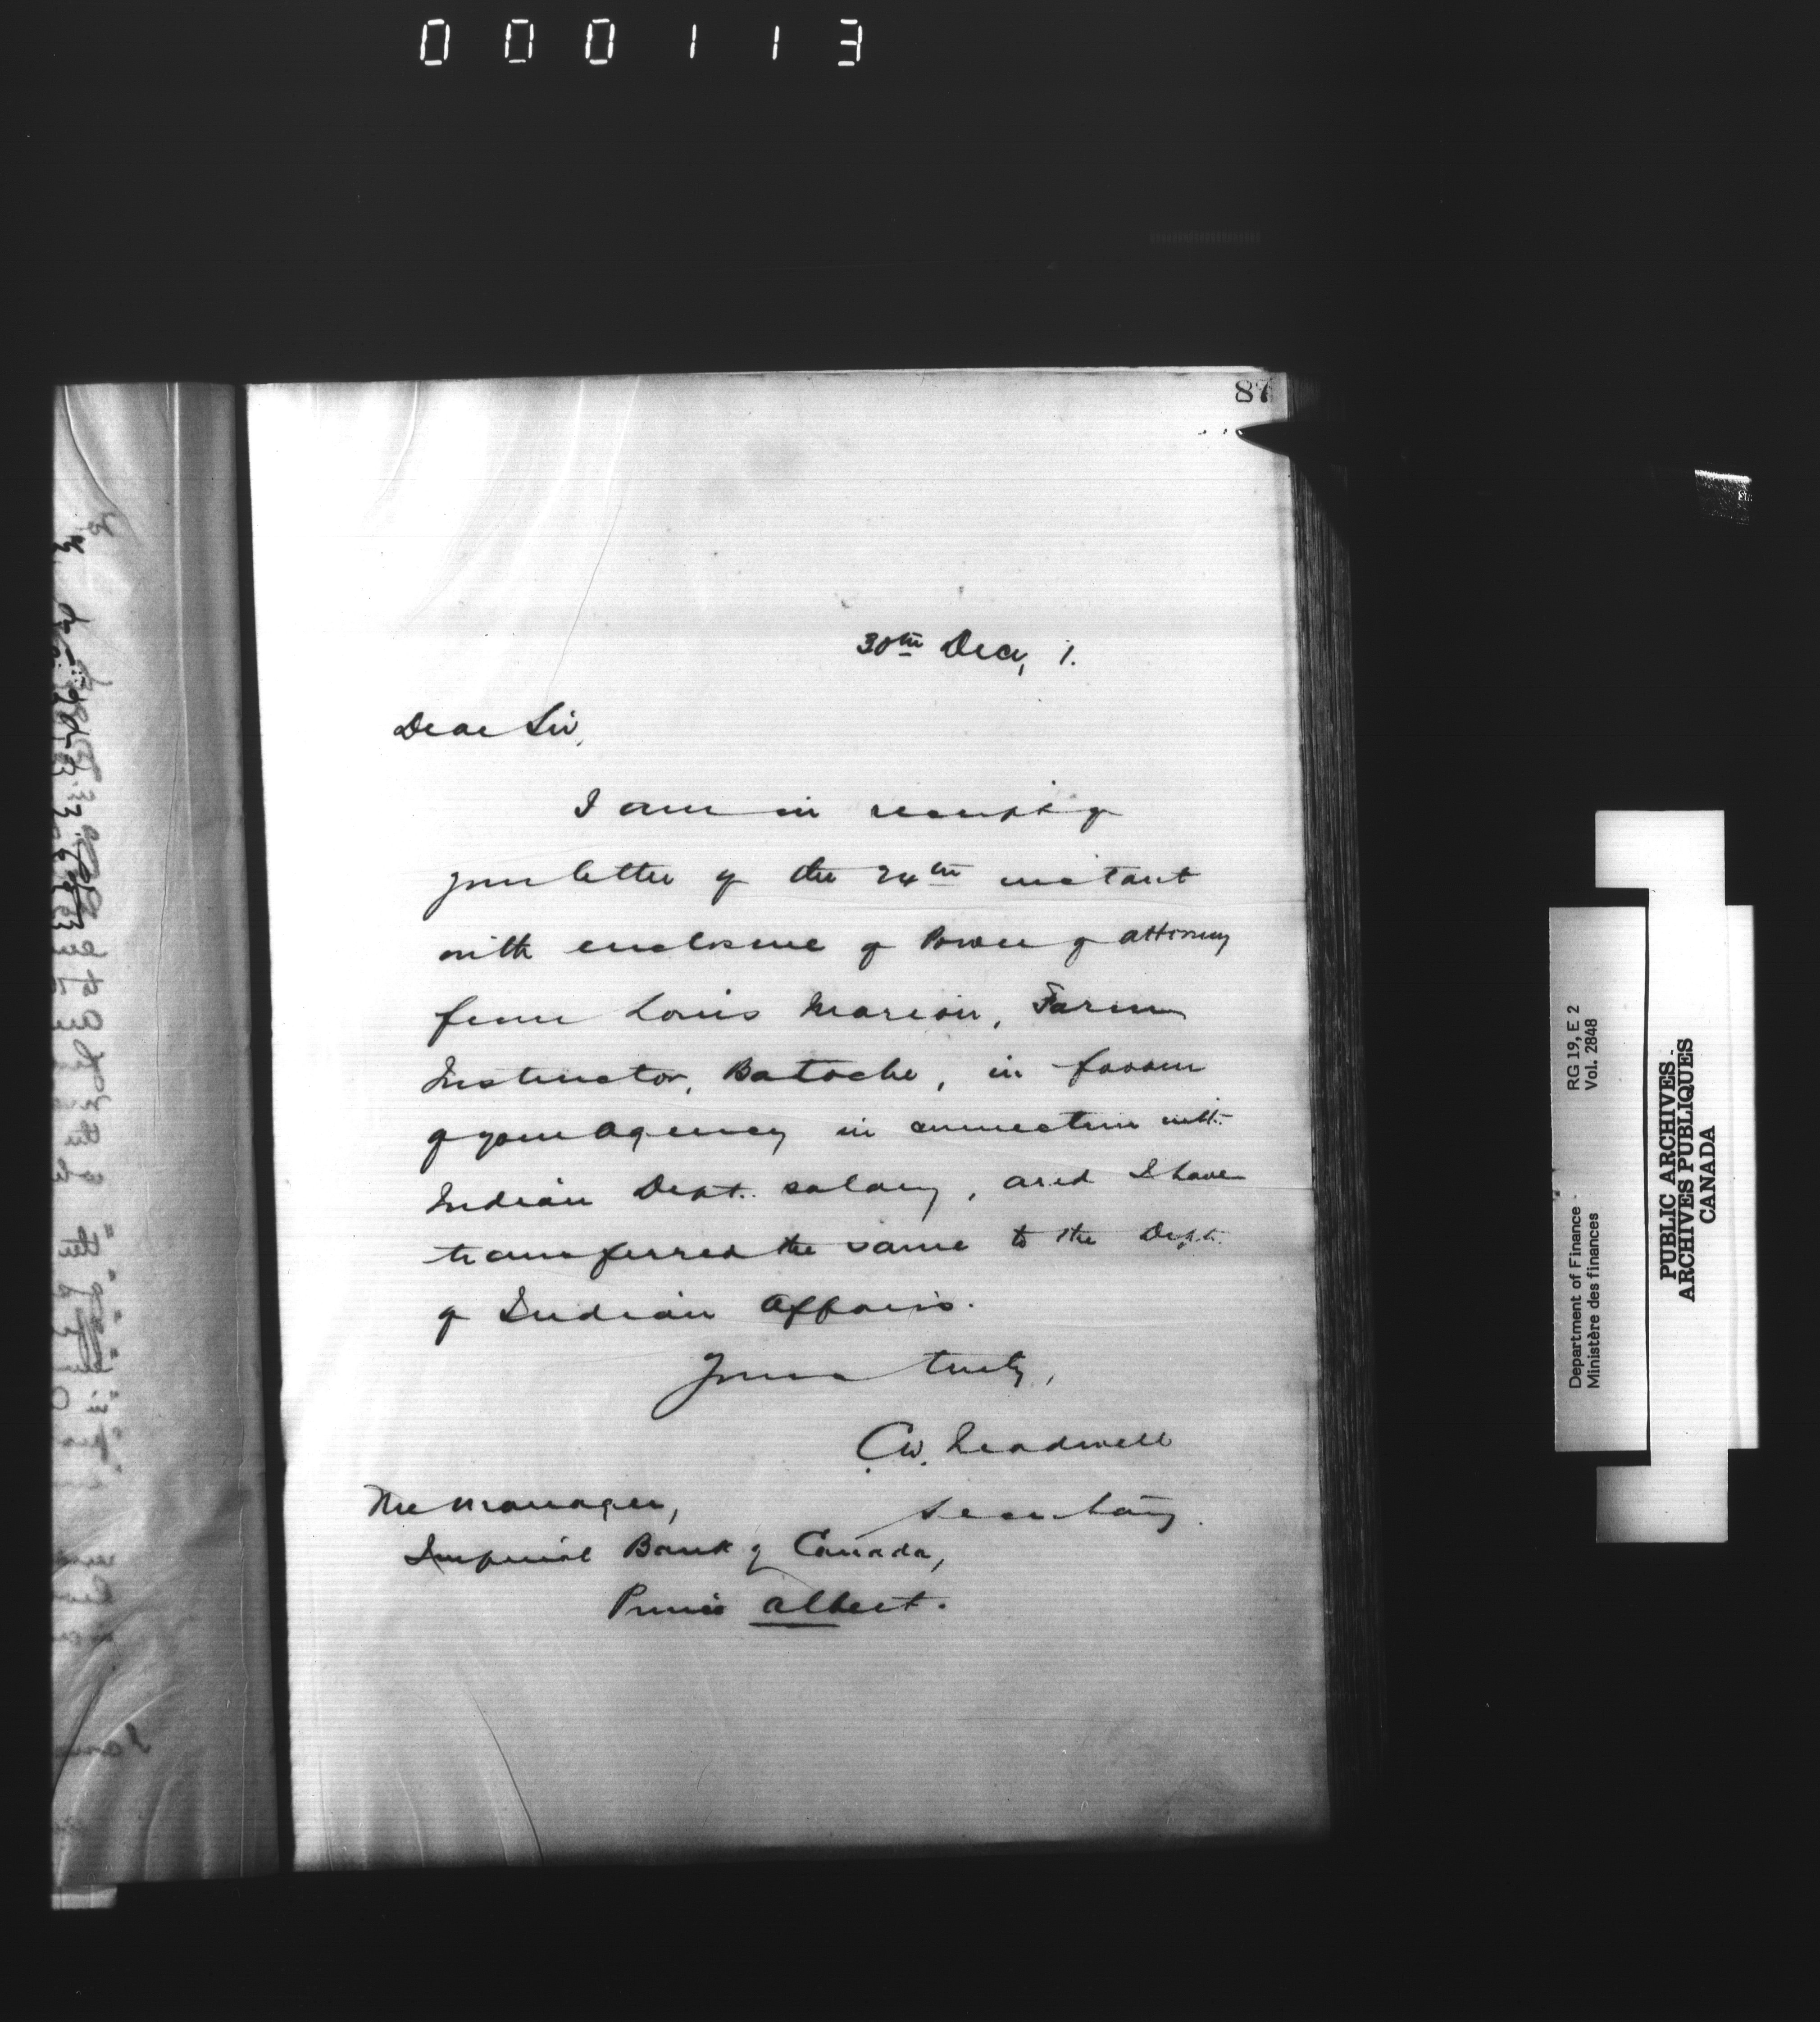 000113
87
30th Dec, 1.
Dear Sir,
I am in receipt of
your letter of the 24th instant
with enclosure of Power of attorney
from Louis Marion, Farm
Instructor, Batoche, in favour
of your agency in connection with
Indian Dept. salary, and I have
transferred the same to the Dept.
of Indian Affairs.
Yours truly,
C.W. Treadwell
Secretary.
The Manager,
Imperial Bank of Canada,
Prince Albert.
Department of Finance RG 19, E 2
Ministère des finances Vol. 2848
PUBLIC ARCHIVES
ARCHIVES PUBLIQUES
CANADA